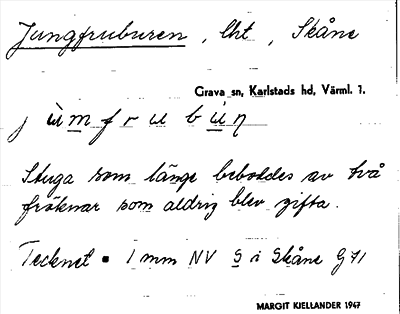 Jungfruburen, lht, Skåne
Grava sn, Karlstads hd, Värml. 1.
j ù m f r u b ú n
Stuga som länge beboddes av två
fröknar som aldrig blev gifta.
Tecknet • 1 mm NV S i Skåne G 71
MARGIT KJELLANDER 1947